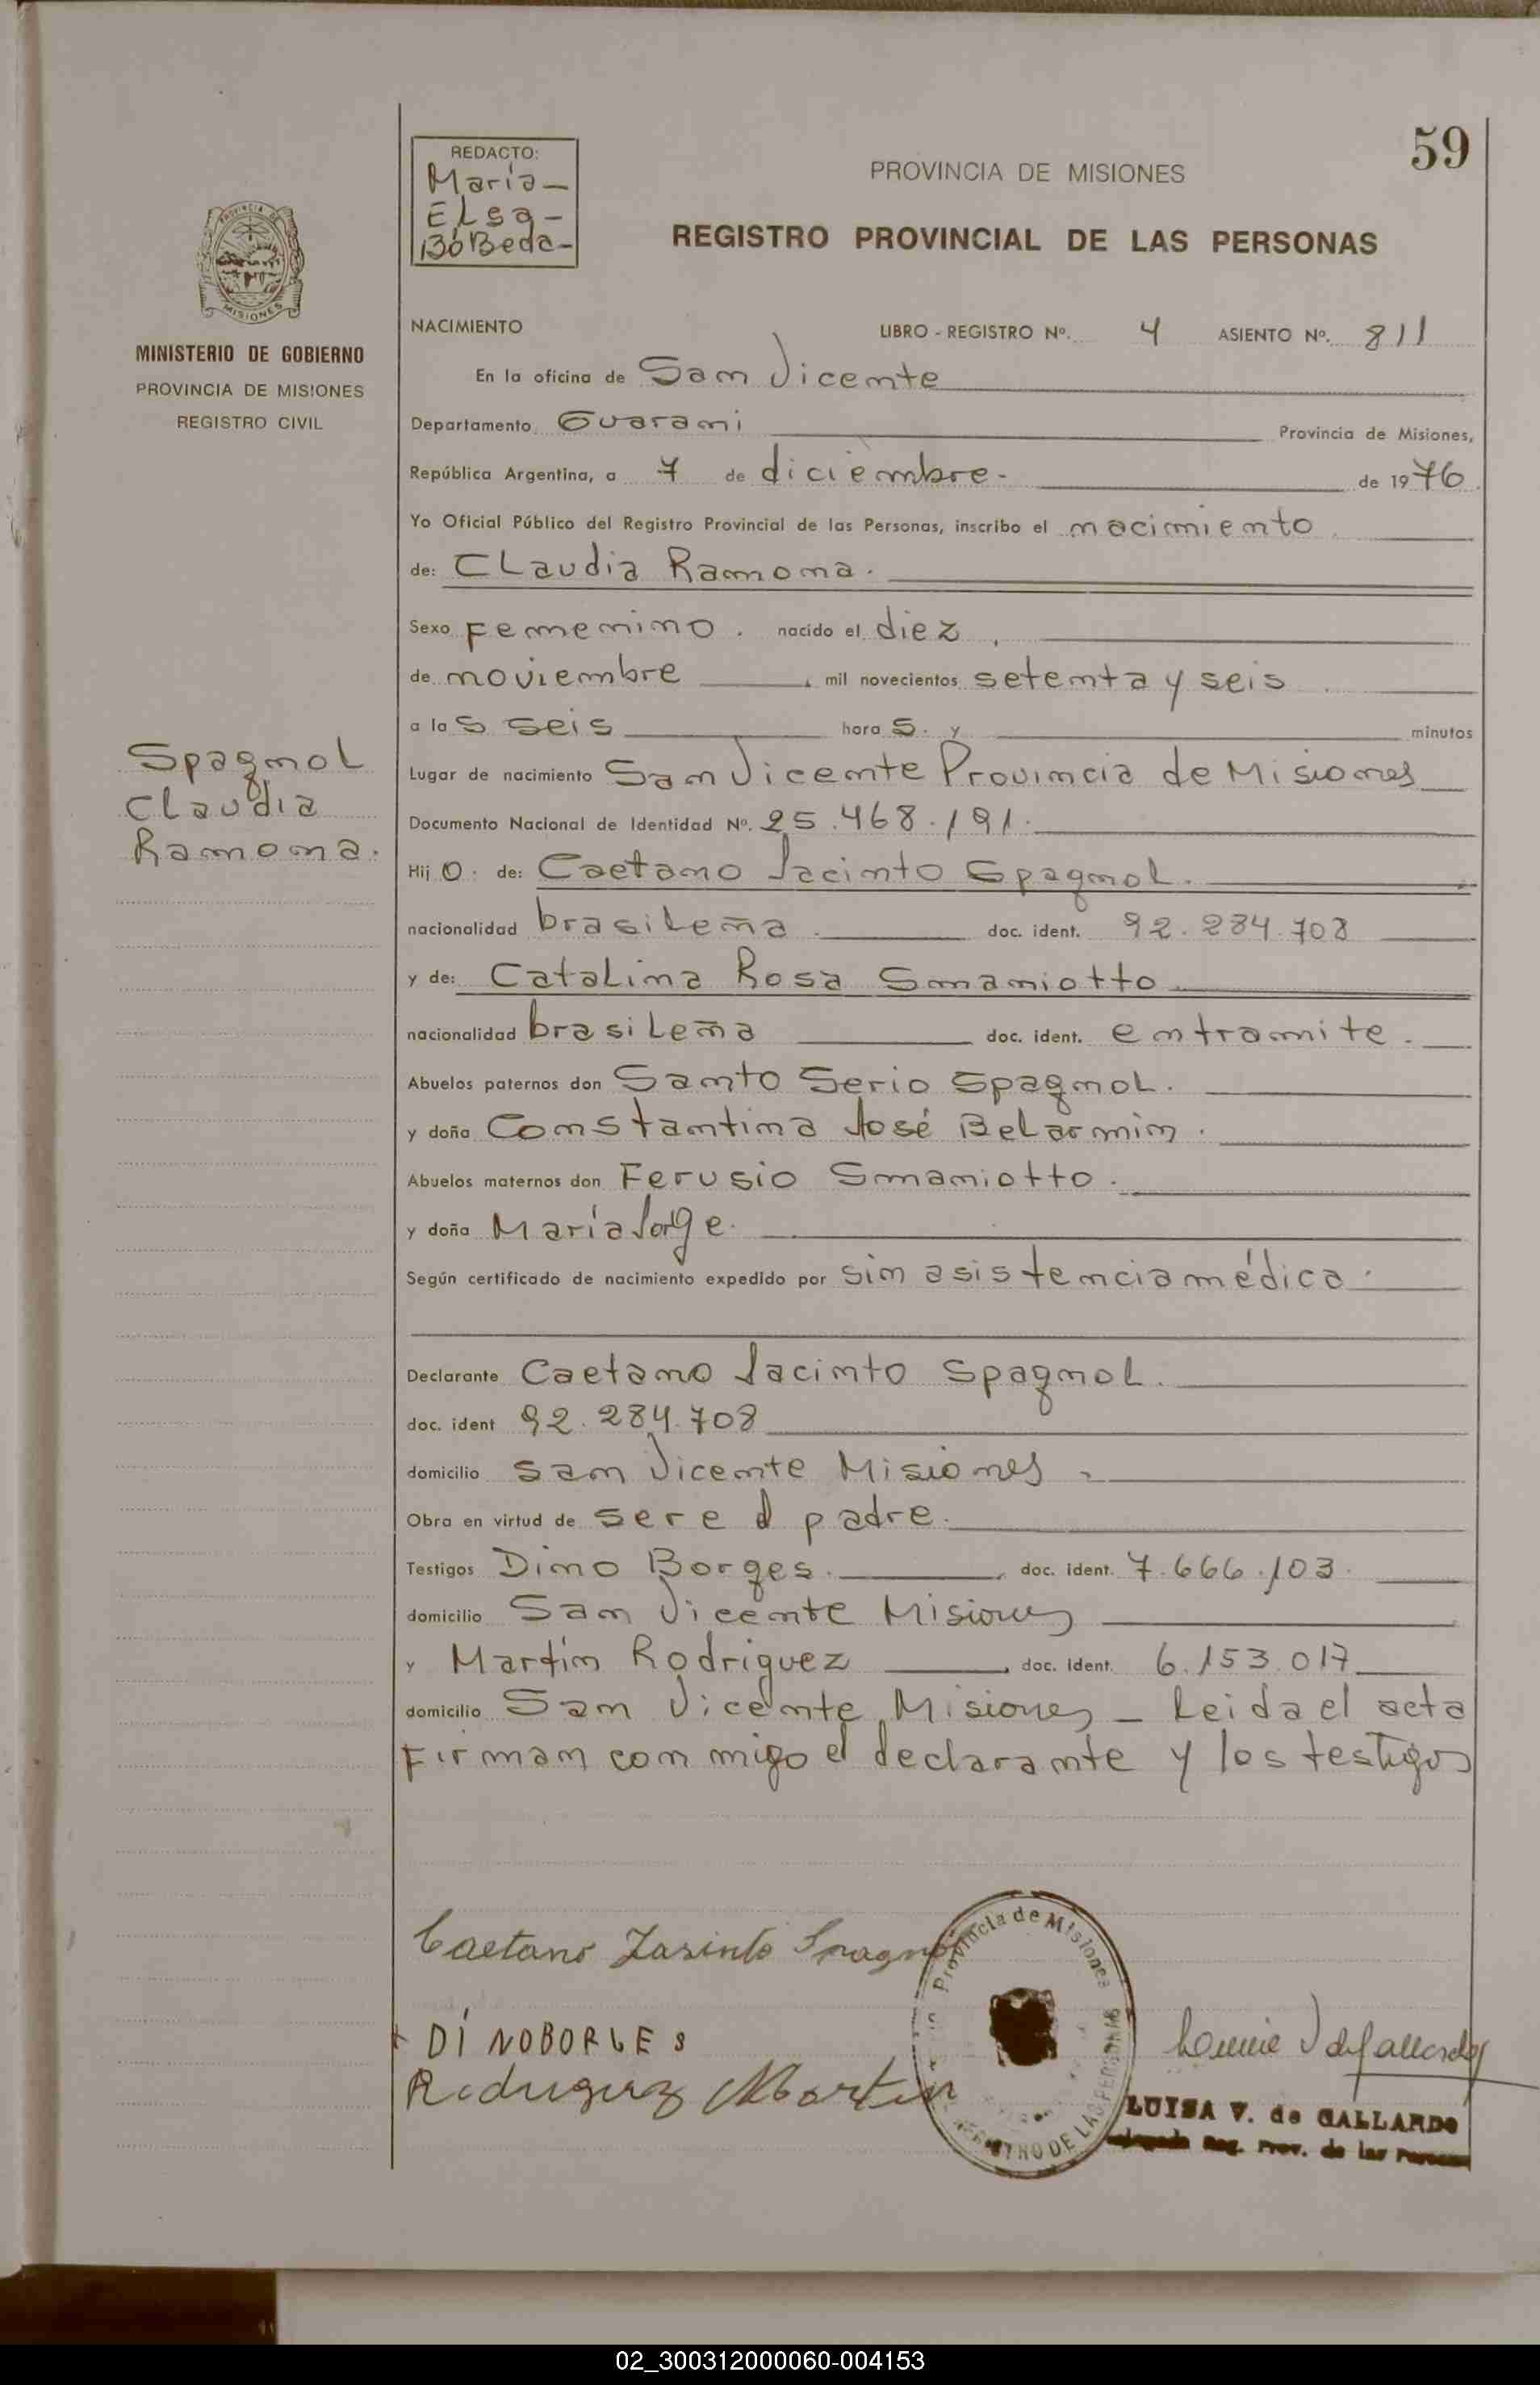 59
REDACTO:
María-
Elsa-
Bóbeda-
PROVINCIA DE MISIONES
REGISTRO PROVINCIAL DE LAS PERSONAS
PROVINCIA DE
MISIONES
MINISTERIO DE GOBIERNO
PROVINCIA DE MISIONES
REGISTRO CIVIL
NACIMIENTO LIBRO - REGISTRO Nº. 4 ASIENTO Nº. 811
En la oficina de San Vicente
Departamento Guarani Provincia de Misiones,
República Argentina, a 7 de diciembre- de 1976.
Yo Oficial Público del Registro Provincial de las Personas, inscribo el nacimiento
de: Claudia Ramona.
Sexo Femenino. nacido el diez,
de noviembre, mil novecientos setenta y seis
a las seis horas. y minutos
Spagnol
Claudia
Ramona.
Lugar de nacimiento San Vicente Provincia de Misiones
Documento Nacional de Identidad Nº. 25.468.191.
Hijo. de: Caetano Jacinto Spagnol.
nacionalidad brasileña. doc. ident. 92.284.708
y de: Catalina Rosa Smaniotto
nacionalidad brasileña doc. ident. en tramite.
Abuelos paternos don Santo Serio Spagnol.
y doña Constantina José Belarmin.
Abuelos maternos don Ferusio Smaniotto.
y doña María Jorge.
Según certificado de nacimiento expedido por sin asistencia médica.
Declarante Caetano Jacinto Spagnol.
doc. ident 92.284.708
domicilio San Vicente Misiones.
Obra en virtud de ser el padre.
Testigos Dino Borges. doc. ident. 7.666.103.
domicilio San Vicente Misiones
y Martín Rodriguez, doc. ident. 6.153.017
domicilio San Vicente Misiones - Leida el acta
Firman conmigo el declarante y los testigos
Caetano Jasinto Spagnol
Provincia de Misiones
REGISTRO DE LAS PERSONAS
DINO BORGES
Rodriguez Martin
LUISA V. de GALLARDO
Delegada Reg. Prov. de las Personas
02_300312000060-004153